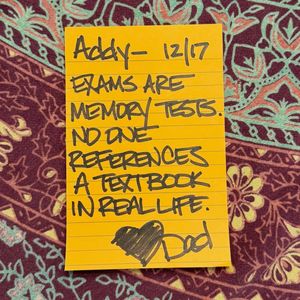 Addy— 12/17
EXAMS ARE
MEMORY TESTS.
NO ONE
REFERENCES
A TEXTBOOK
IN REAL LIFE.
Dad